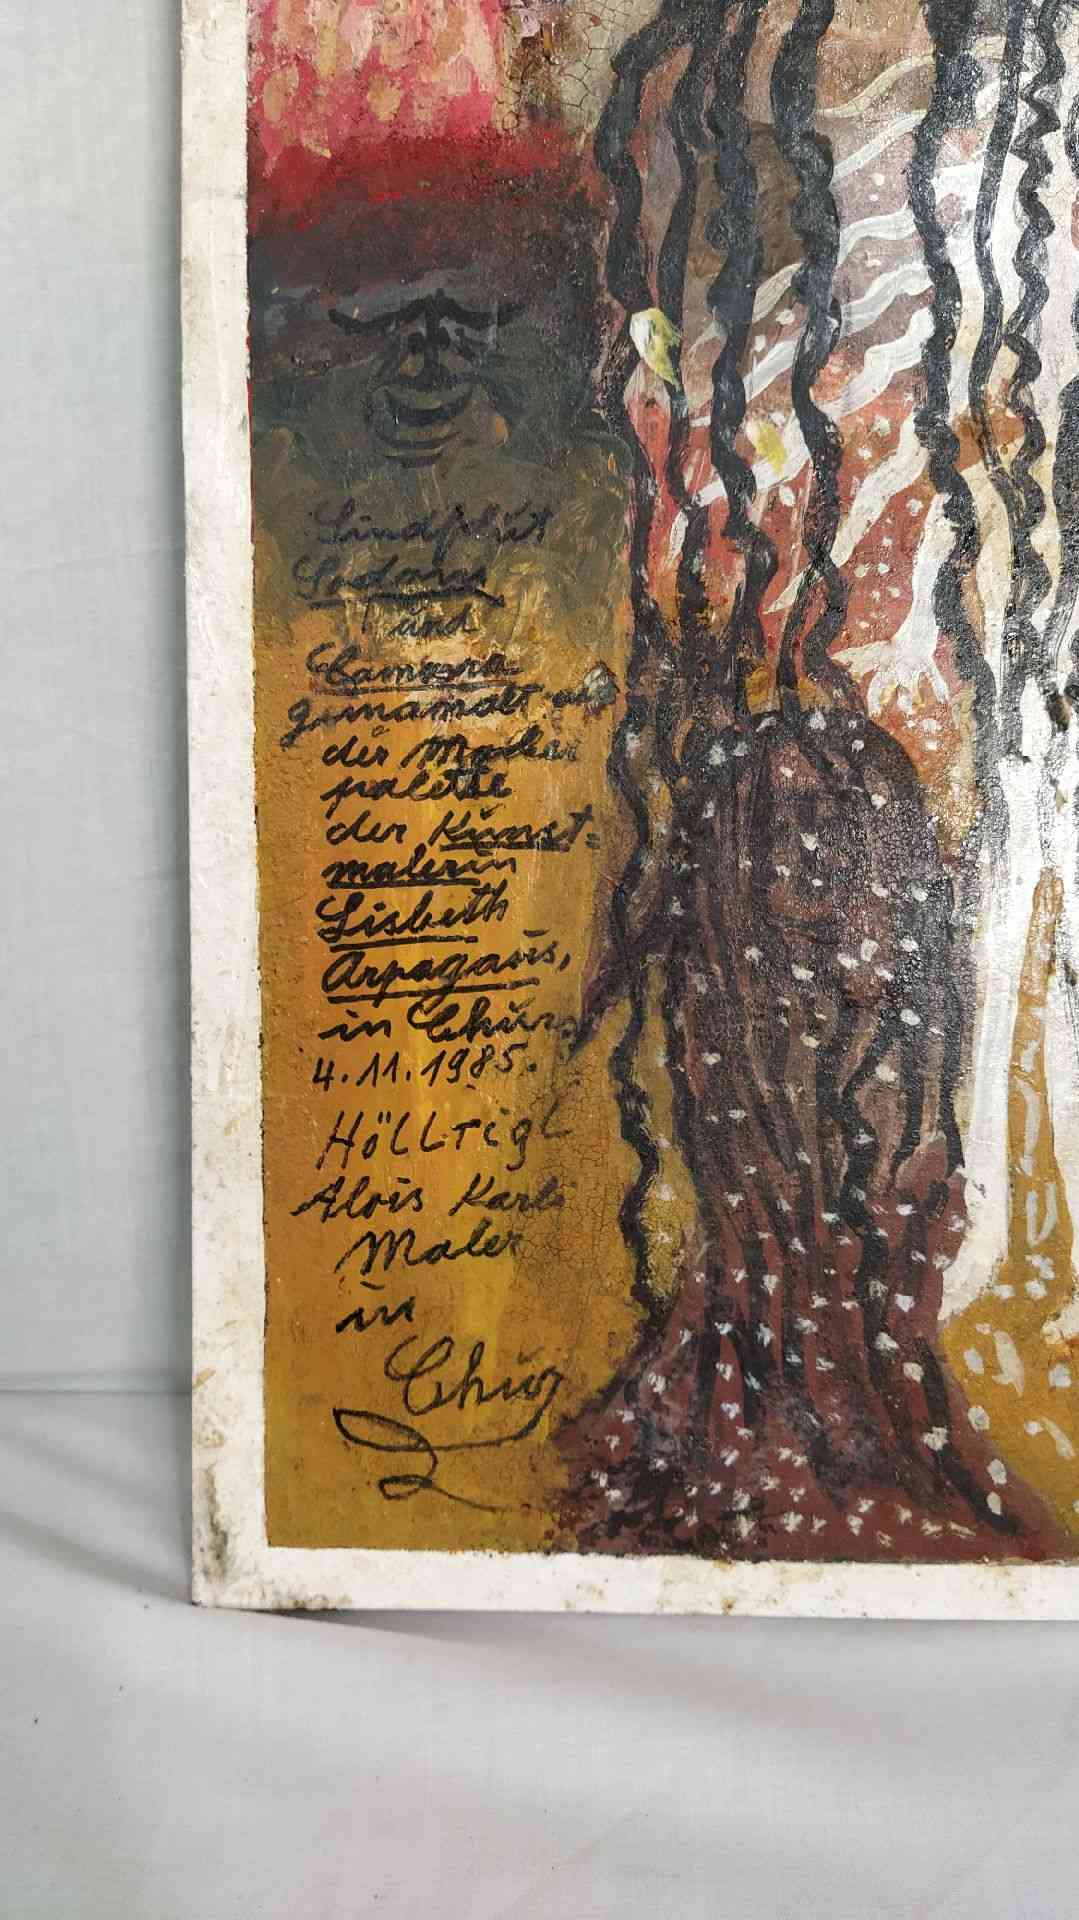 Sindflut
Sodom
und
Gamorra
gemamalt auf
der Maler
palette
der Kunst=
malerin
Lisbeth
Arpagaus,
in Chur
4.11.1985.
Höllrigl
Alois Karl
Maler
in
Chur